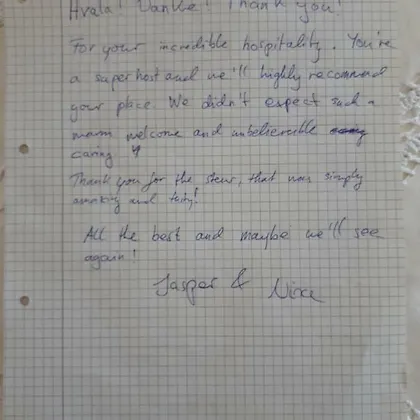 Hvala! Danke! Thank you!
For your incredible hospitality. You're
a superhost and we'll highly recommend
your place. We didn't expect such a
warm welcome and unbelievable
caring.
Thank you for the stew, that was simply
amazing and tasty!
All the best and maybe we'll see
again!
Jasper & Nina